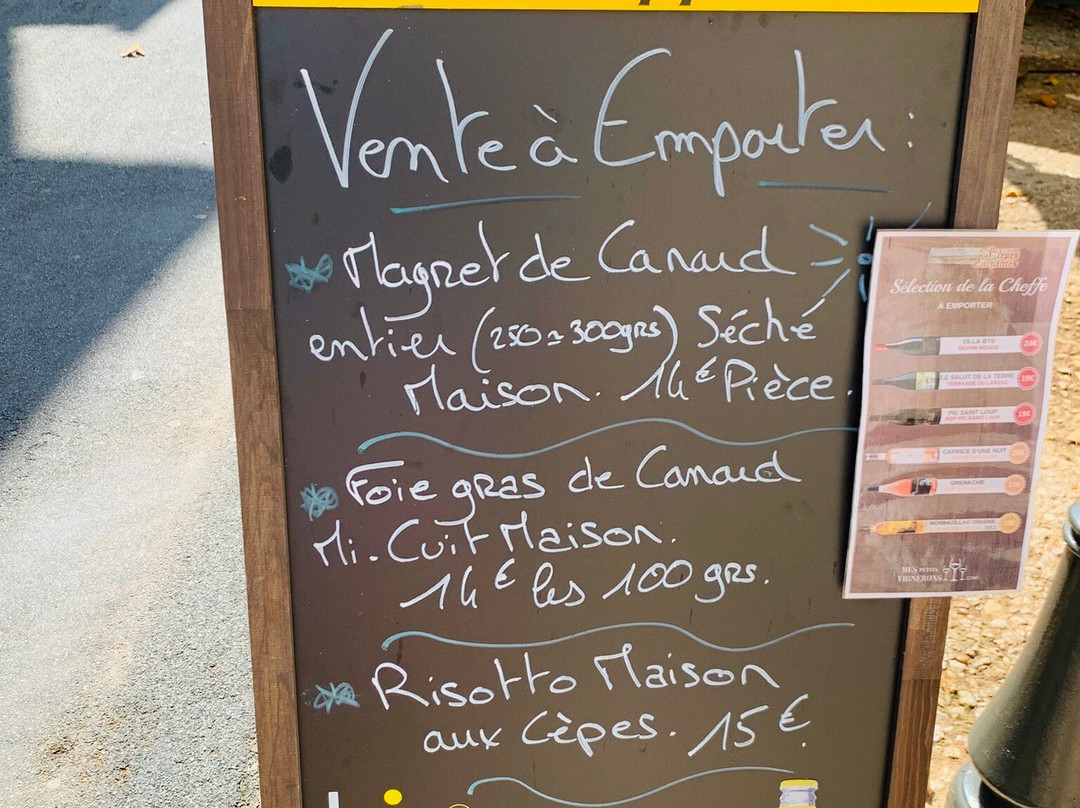 Vente à Emporter :
Magret de Canard
entier (250 ≃ 300grs) Séché
Maison. 14€ Pièce.
Foie gras de Canard
Mi-Cuit Maison.
14€ les 100 grs.
Risotto Maison
aux Cèpes. 15€.
Sélection de la Cheffe
À EMPORTER
VILLA BYS
24€
LE SALUT DE LA TERRE
TERRASSE DU LARZAC
19€
PIC SAINT LOUP
AOP PIC SAINT LOUP
19€
CAPRICE D'UNE NUIT
GRENACHE
12€
MONBAZILLAC
MES PETITS
VIGNERONS.COM